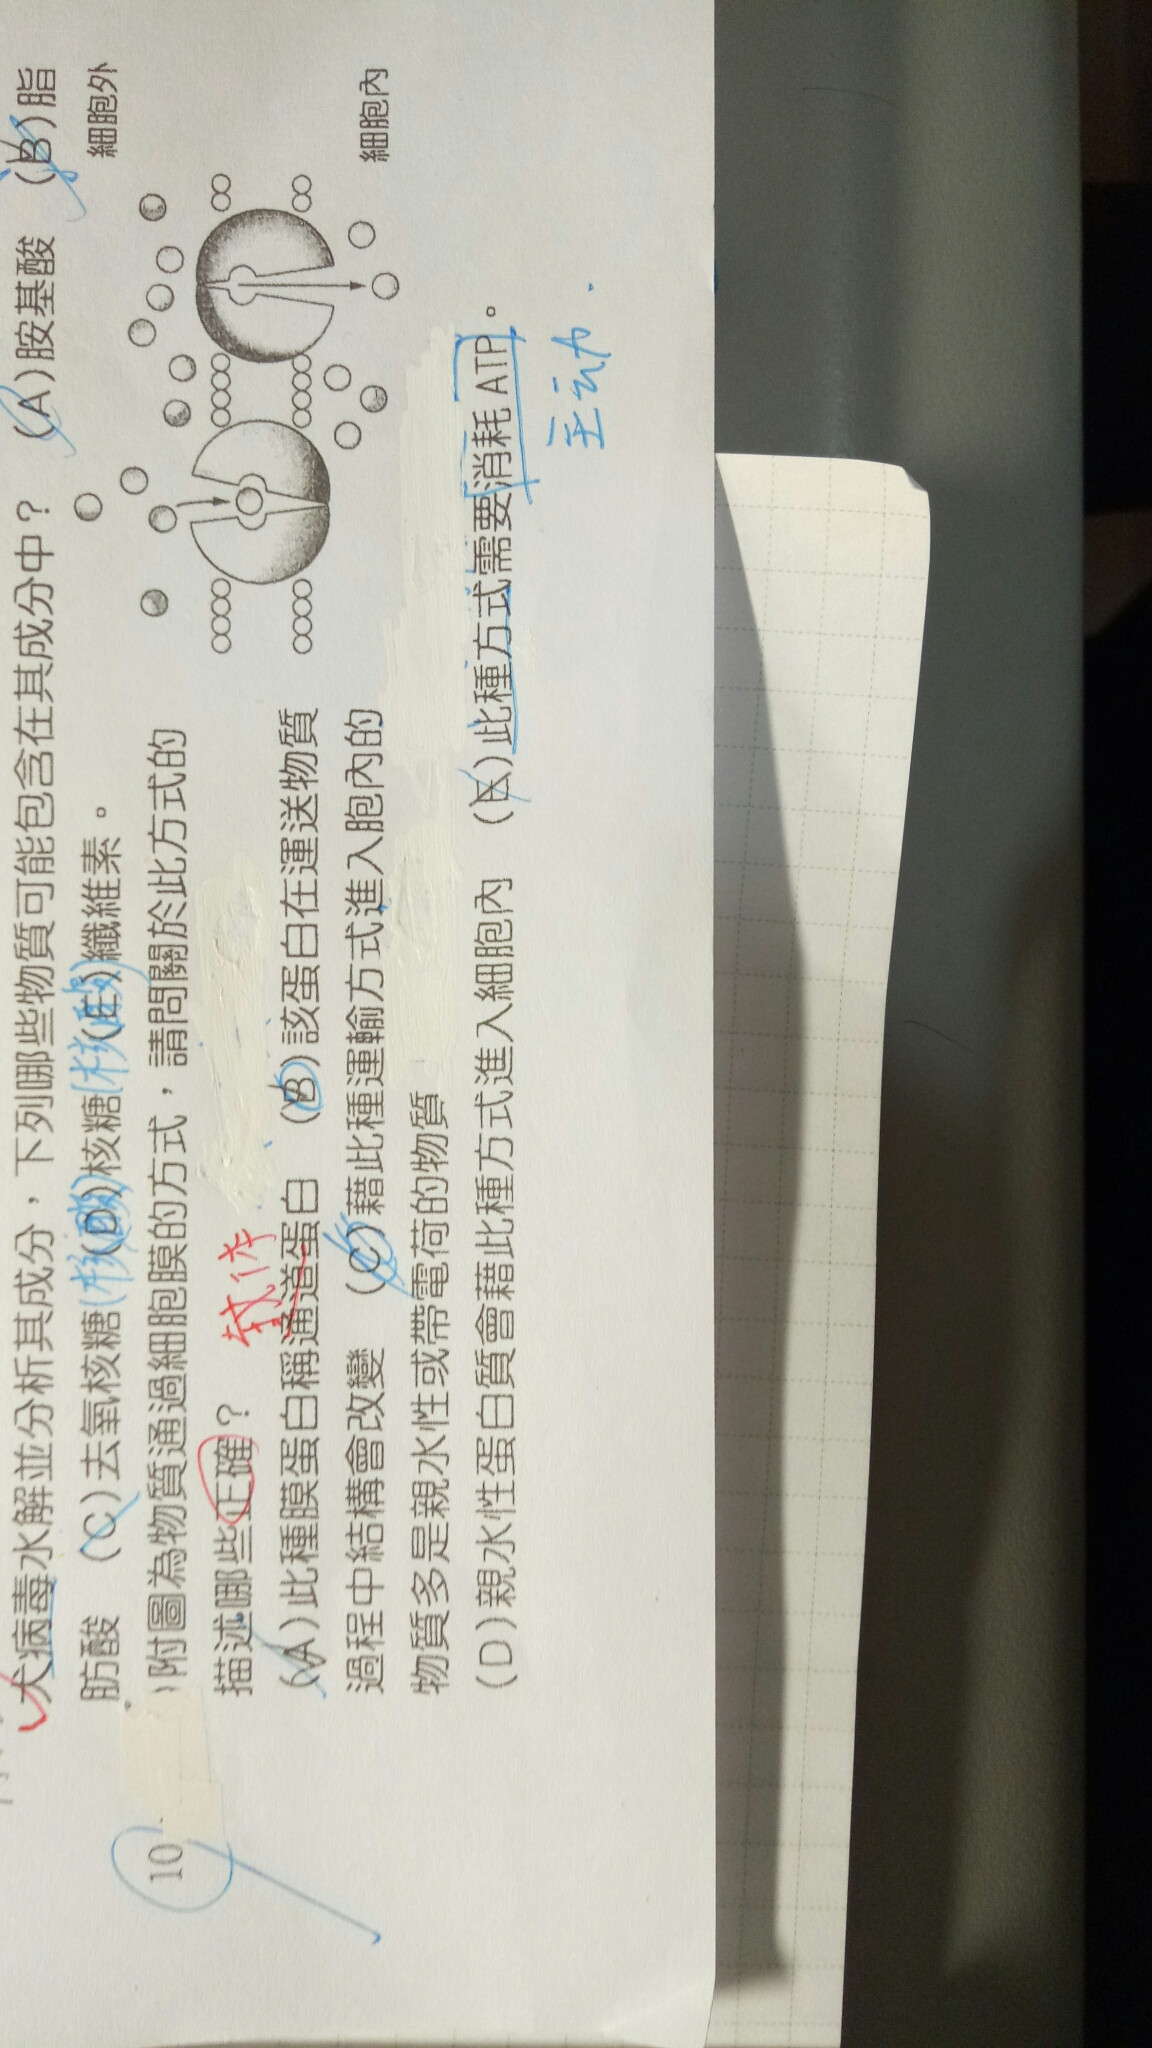 犬病毒水解並分析其成分，下列哪些物質可能包含在其成分中？ (A)胺基酸 (B)脂
肪酸 (C)去氧核糖(核酸) (D)核糖(核酸) (E)纖維素。
10
附圖為物質通過細胞膜的方式，請問關於此方式的
描述哪些正確？
载体
(A)此種膜蛋白稱通道蛋白 (B)該蛋白在運送物質
過程中結構會改變 (C)藉此種運輸方式進入胞內的
物質多是親水性或帶電荷的物質
(D)親水性蛋白質會藉此種方式進入細胞內 (E)此種方式需要消耗 ATP。
主动
細胞外
細胞內